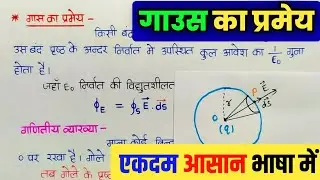 गाउस का प्रमेय
* गास का प्रमेय -
किसी बंद
उस बंद प्रष्ठ के अन्दर निर्वात में उपस्थित कुल आवेश का 1/ε₀ गुना
होता है।
जहाँ ε₀ निर्वात की विद्युतशीलत
ϕE = ϕs E⃗ . ds⃗
गणितीय व्याख्या -
माना कोई
O पर रखा है। गोले
तब गोले के प्रष्ठ
r
P
E⃗
ds⃗
O
(q)
एकदम आसान भाषा में